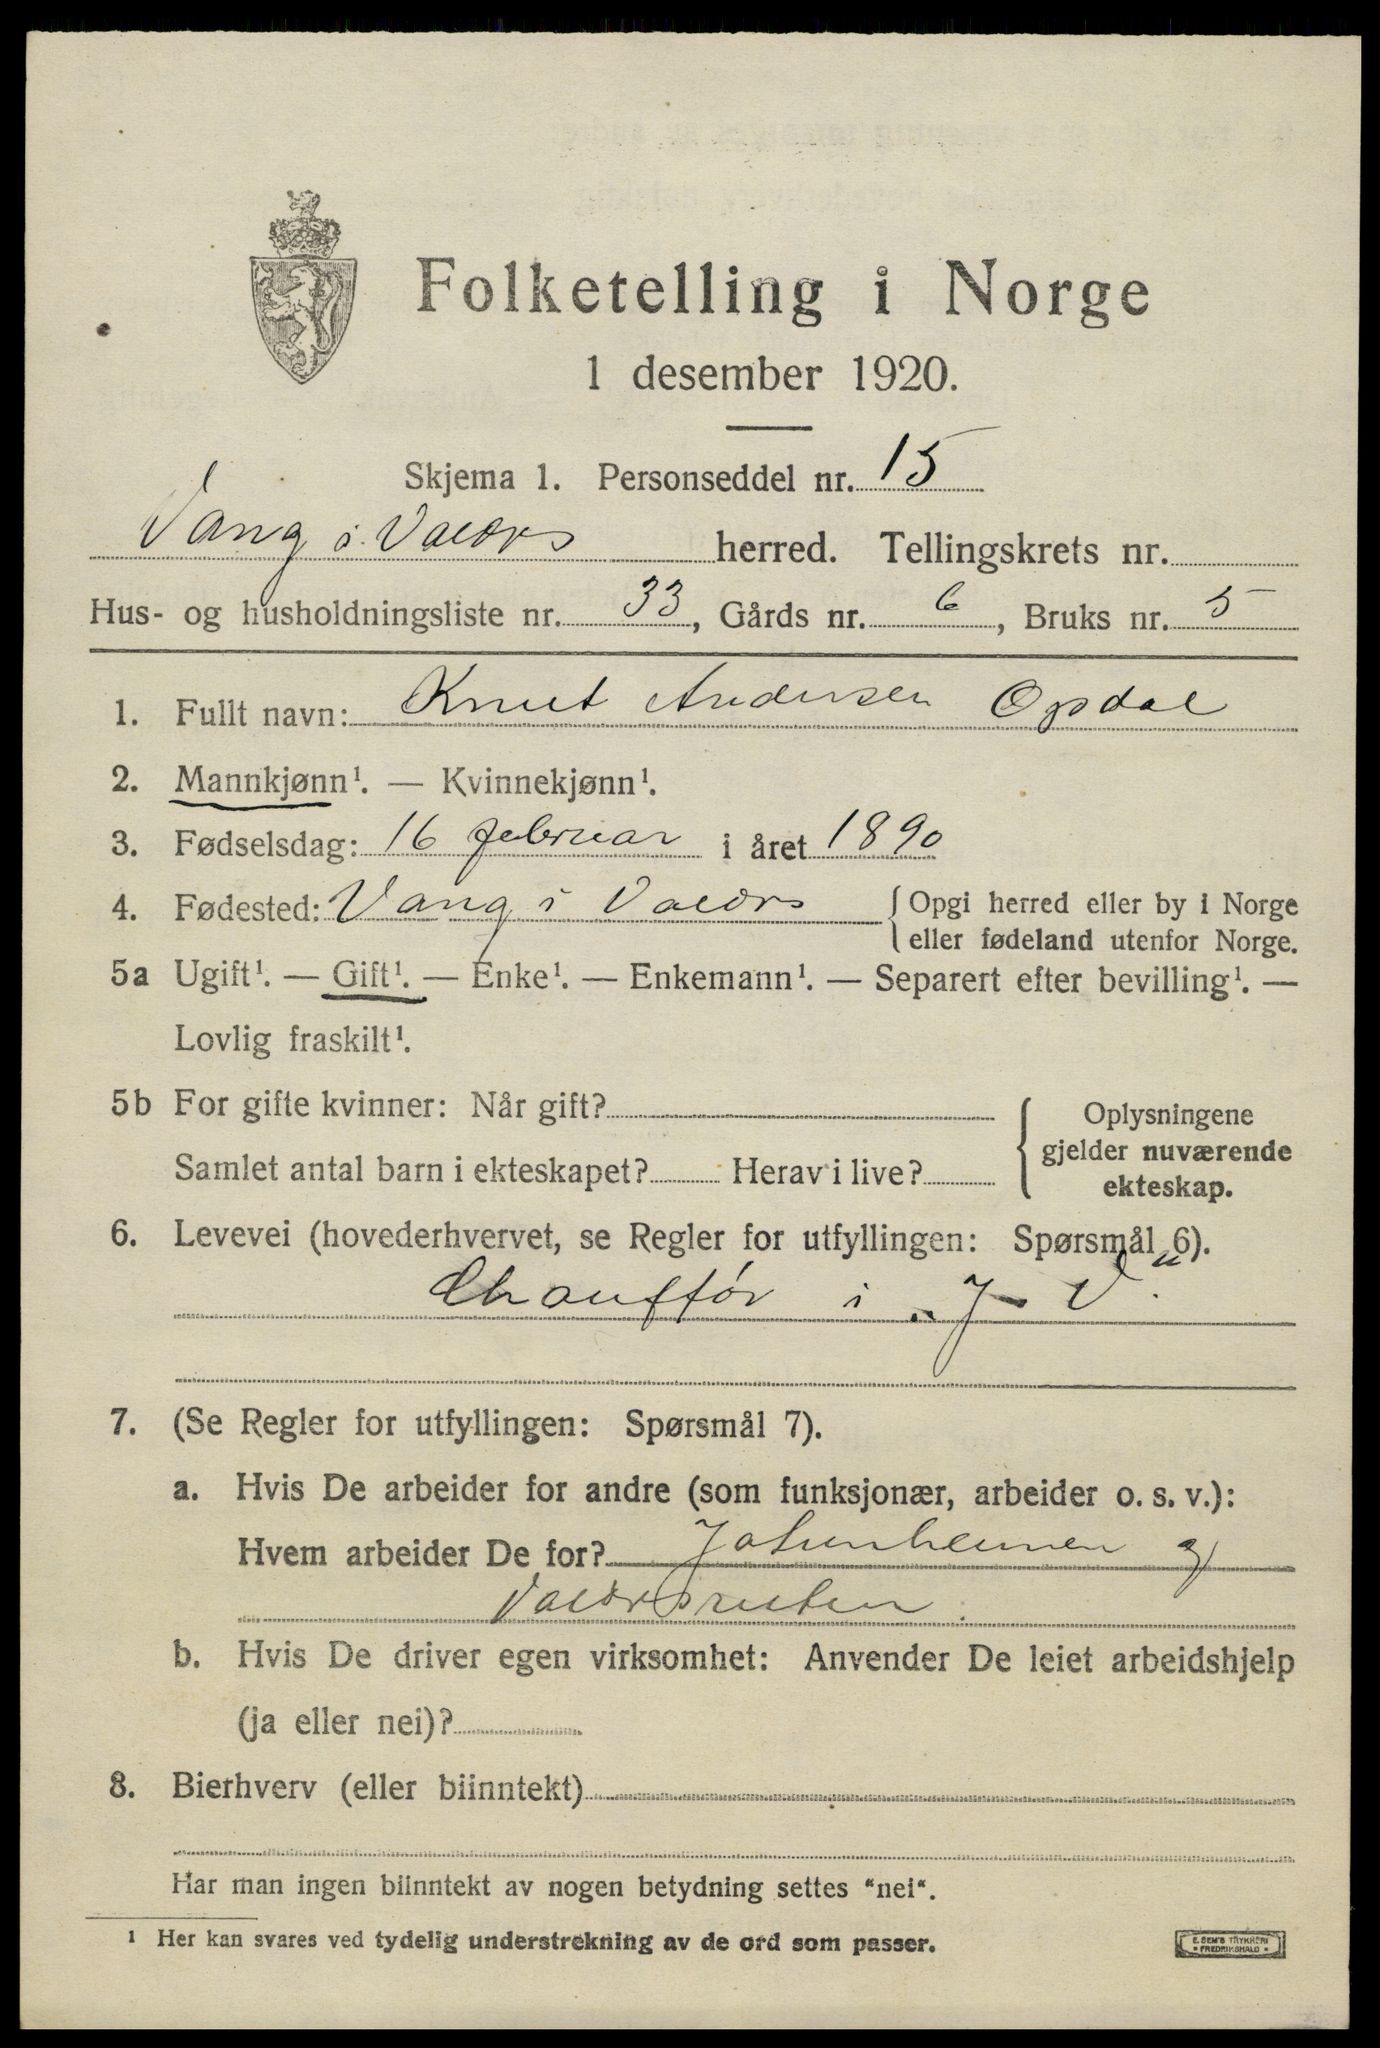 Folketelling i Norge
1 desember 1920.
Skjema 1. Personseddel nr. 15
Vang i Valdrs herred. Tellingskrets nr.
Hus- og husholdningsliste nr. 33, Gårds nr. 6, Bruks nr. 5
1. Fullt navn: Knut Andersen Opdal
2. Mannkjønn¹. — Kvinnekjønn¹.
3. Fødselsdag: 16 februar i året 1890
4. Fødested: Vang i Valdrs { Opgi herred eller by i Norge
eller fødeland utenfor Norge.
5a Ugift¹. — Gift¹. — Enke¹. — Enkemann¹. — Separert efter bevilling¹. —
Lovlig fraskilt¹.
5b For gifte kvinner: Når gift?
Samlet antal barn i ekteskapet? Herav i live?
{ Oplysningene
gjelder nuværende
ekteskap.
6. Levevei (hovederhvervet, se Regler for utfyllingen: Spørsmål 6).
Chauffór i „J V"
7. (Se Regler for utfyllingen: Spørsmål 7).
a. Hvis De arbeider for andre (som funksjonær, arbeider o. s. v.):
Hvem arbeider De for? Jotunheimen og
Valdrsruten.
b. Hvis De driver egen virksomhet: Anvender De leiet arbeidshjelp
(ja eller nei)?
8. Bierhverv (eller biinntekt)
Har man ingen biinntekt av nogen betydning settes "nei".
¹ Her kan svares ved tydelig understrekning av de ord som passer.
E. SEM'S TRYKKERI
• FREDRIKSHALD •